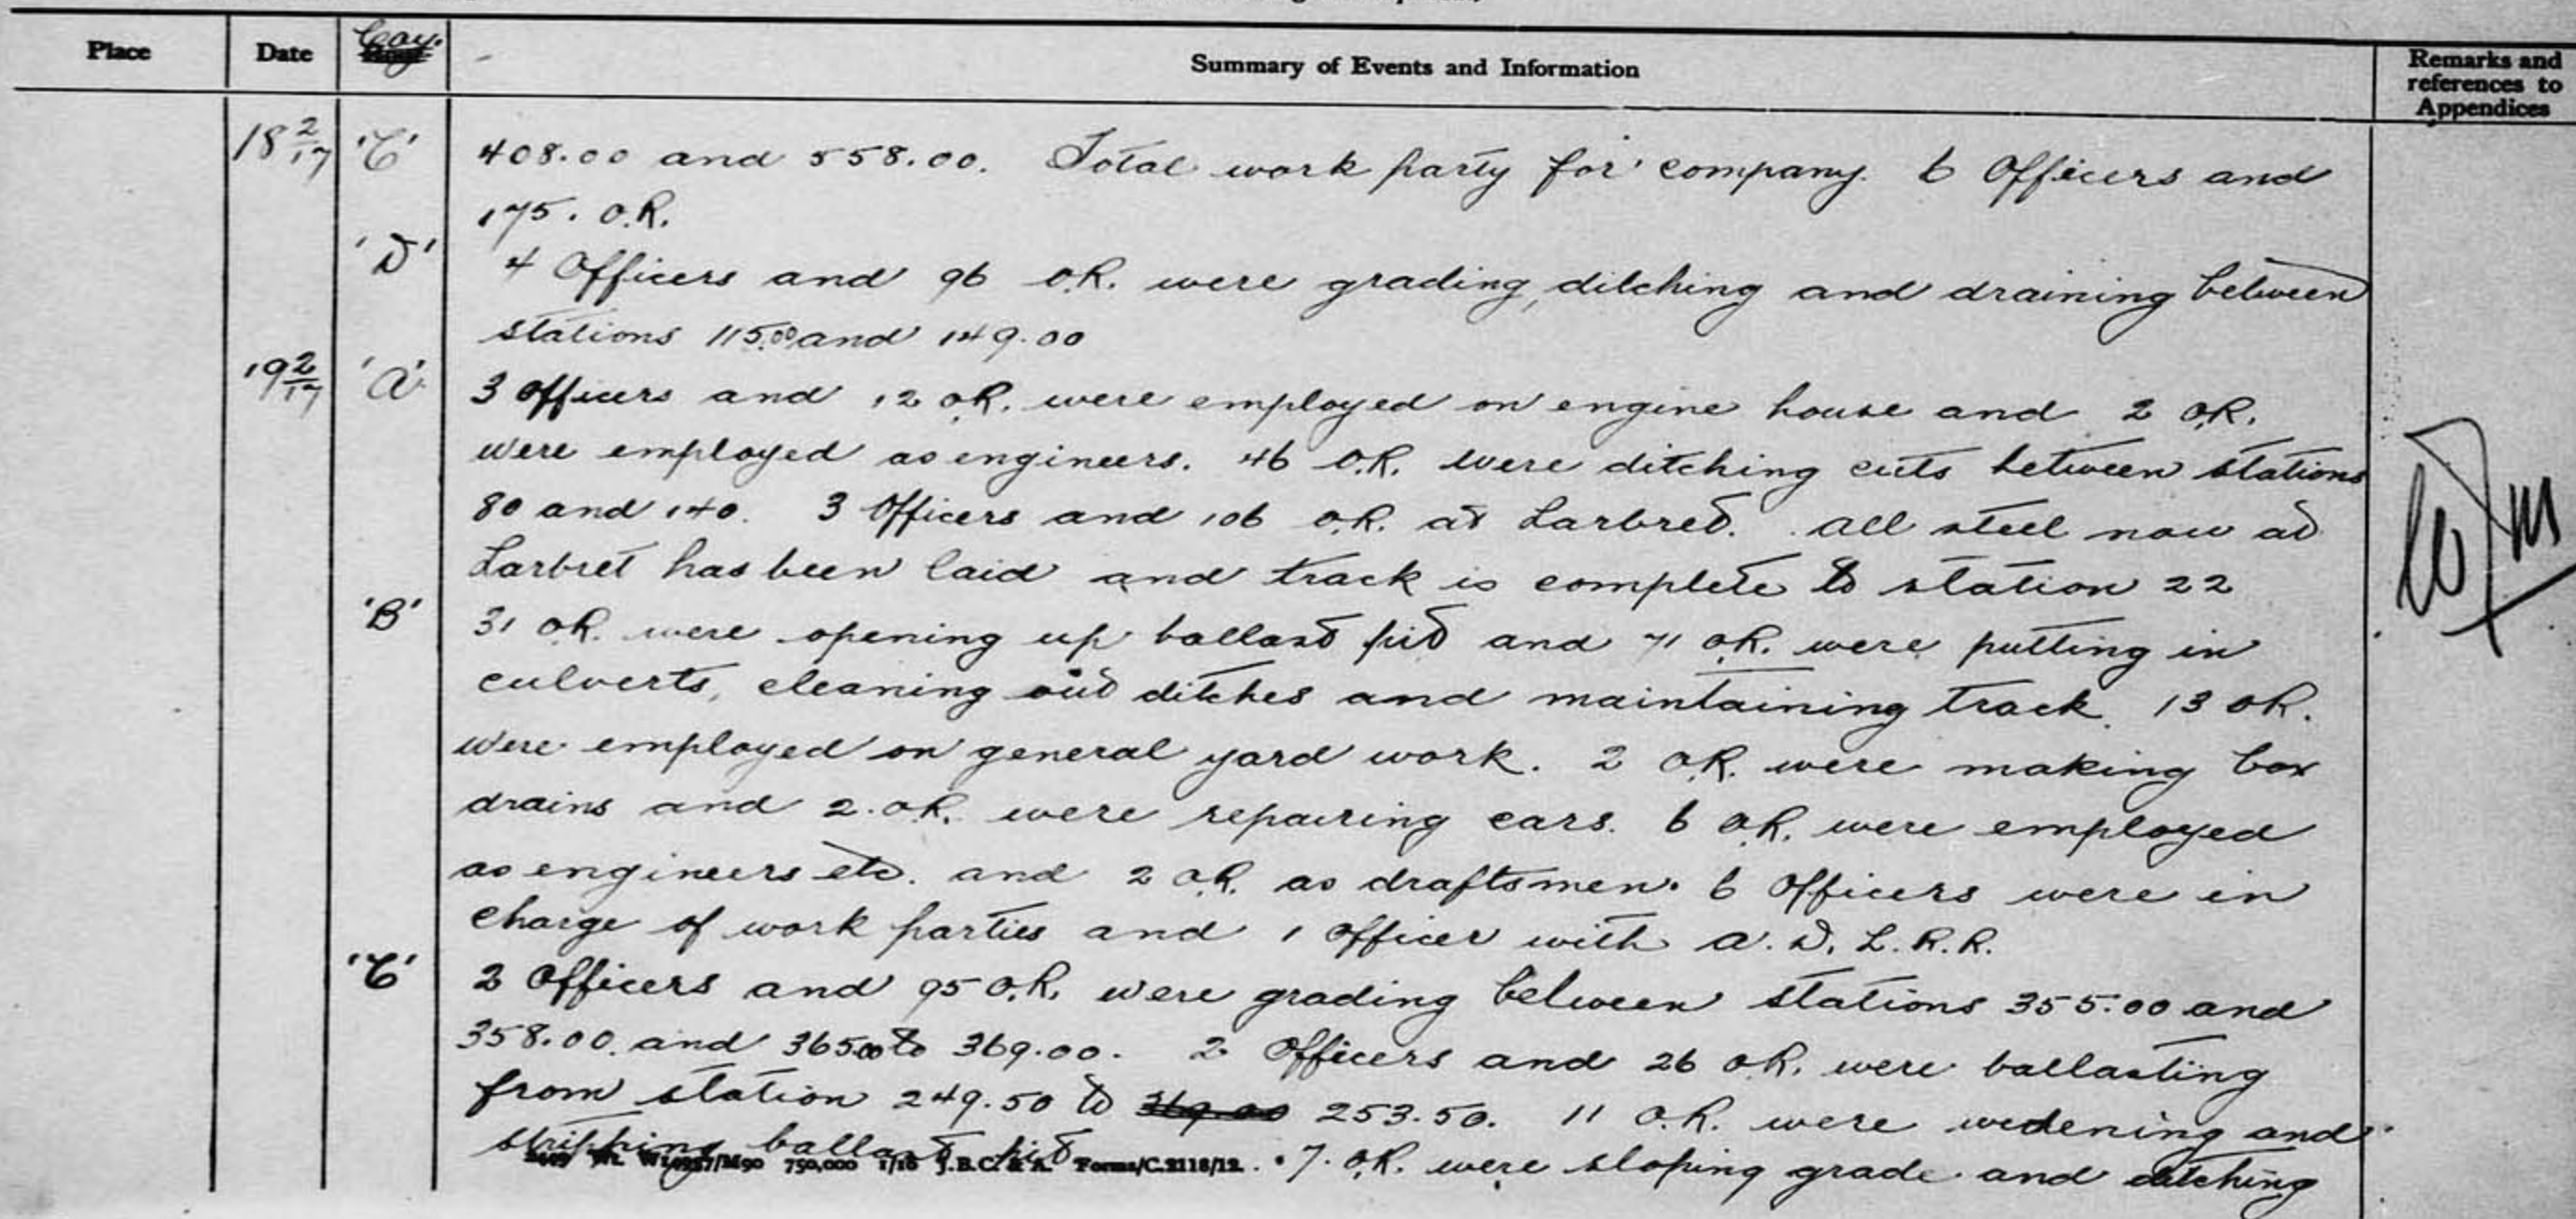 Place Date Coy. Summary of Events and Information Remarks and references to Appendices
18 2/17 'C' 408.00 and 558.00. Total work party for company. 6 Officers and
175. O.R.
'D' 4 Officers and 96 O.R. were grading, ditching and draining between
stations 115.00 and 149.00
19 2/17 'A' 3 Officers and 12 O.R. were employed on engine house and 2 O.R.
were employed as engineers. 46 O.R. were ditching cuts between stations
80 and 140. 3 Officers and 106 O.R. at Larbret. All steel now at
Larbret has been laid and track is complete to station 22
'B' 31 O.R. were opening up ballast pit and 71 O.R. were putting in
culverts, cleaning out ditches and maintaining track. 13 O.R.
were employed on general yard work. 2 O.R. were making box
drains and 2. O.R. were repairing cars. 6 O.R. were employed
as engineers etc. and 2 O.R. as draftsmen. 6 Officers were in
charge of work parties and 1 Officer with A. D. L. R. R.
'C' 2 Officers and 95 O.R. were grading between stations 355.00 and
358.00. and 365.00 to 369.00. 2 Officers and 26 O.R. were ballasting
from station 249.50 to 369.00 253.50. 11 O.R. were widening and
stripping ballast pit. 7. O.R. were sloping grade and ditching
750,000 1/16 J.B.C. & A. Forms/C.2118/12.